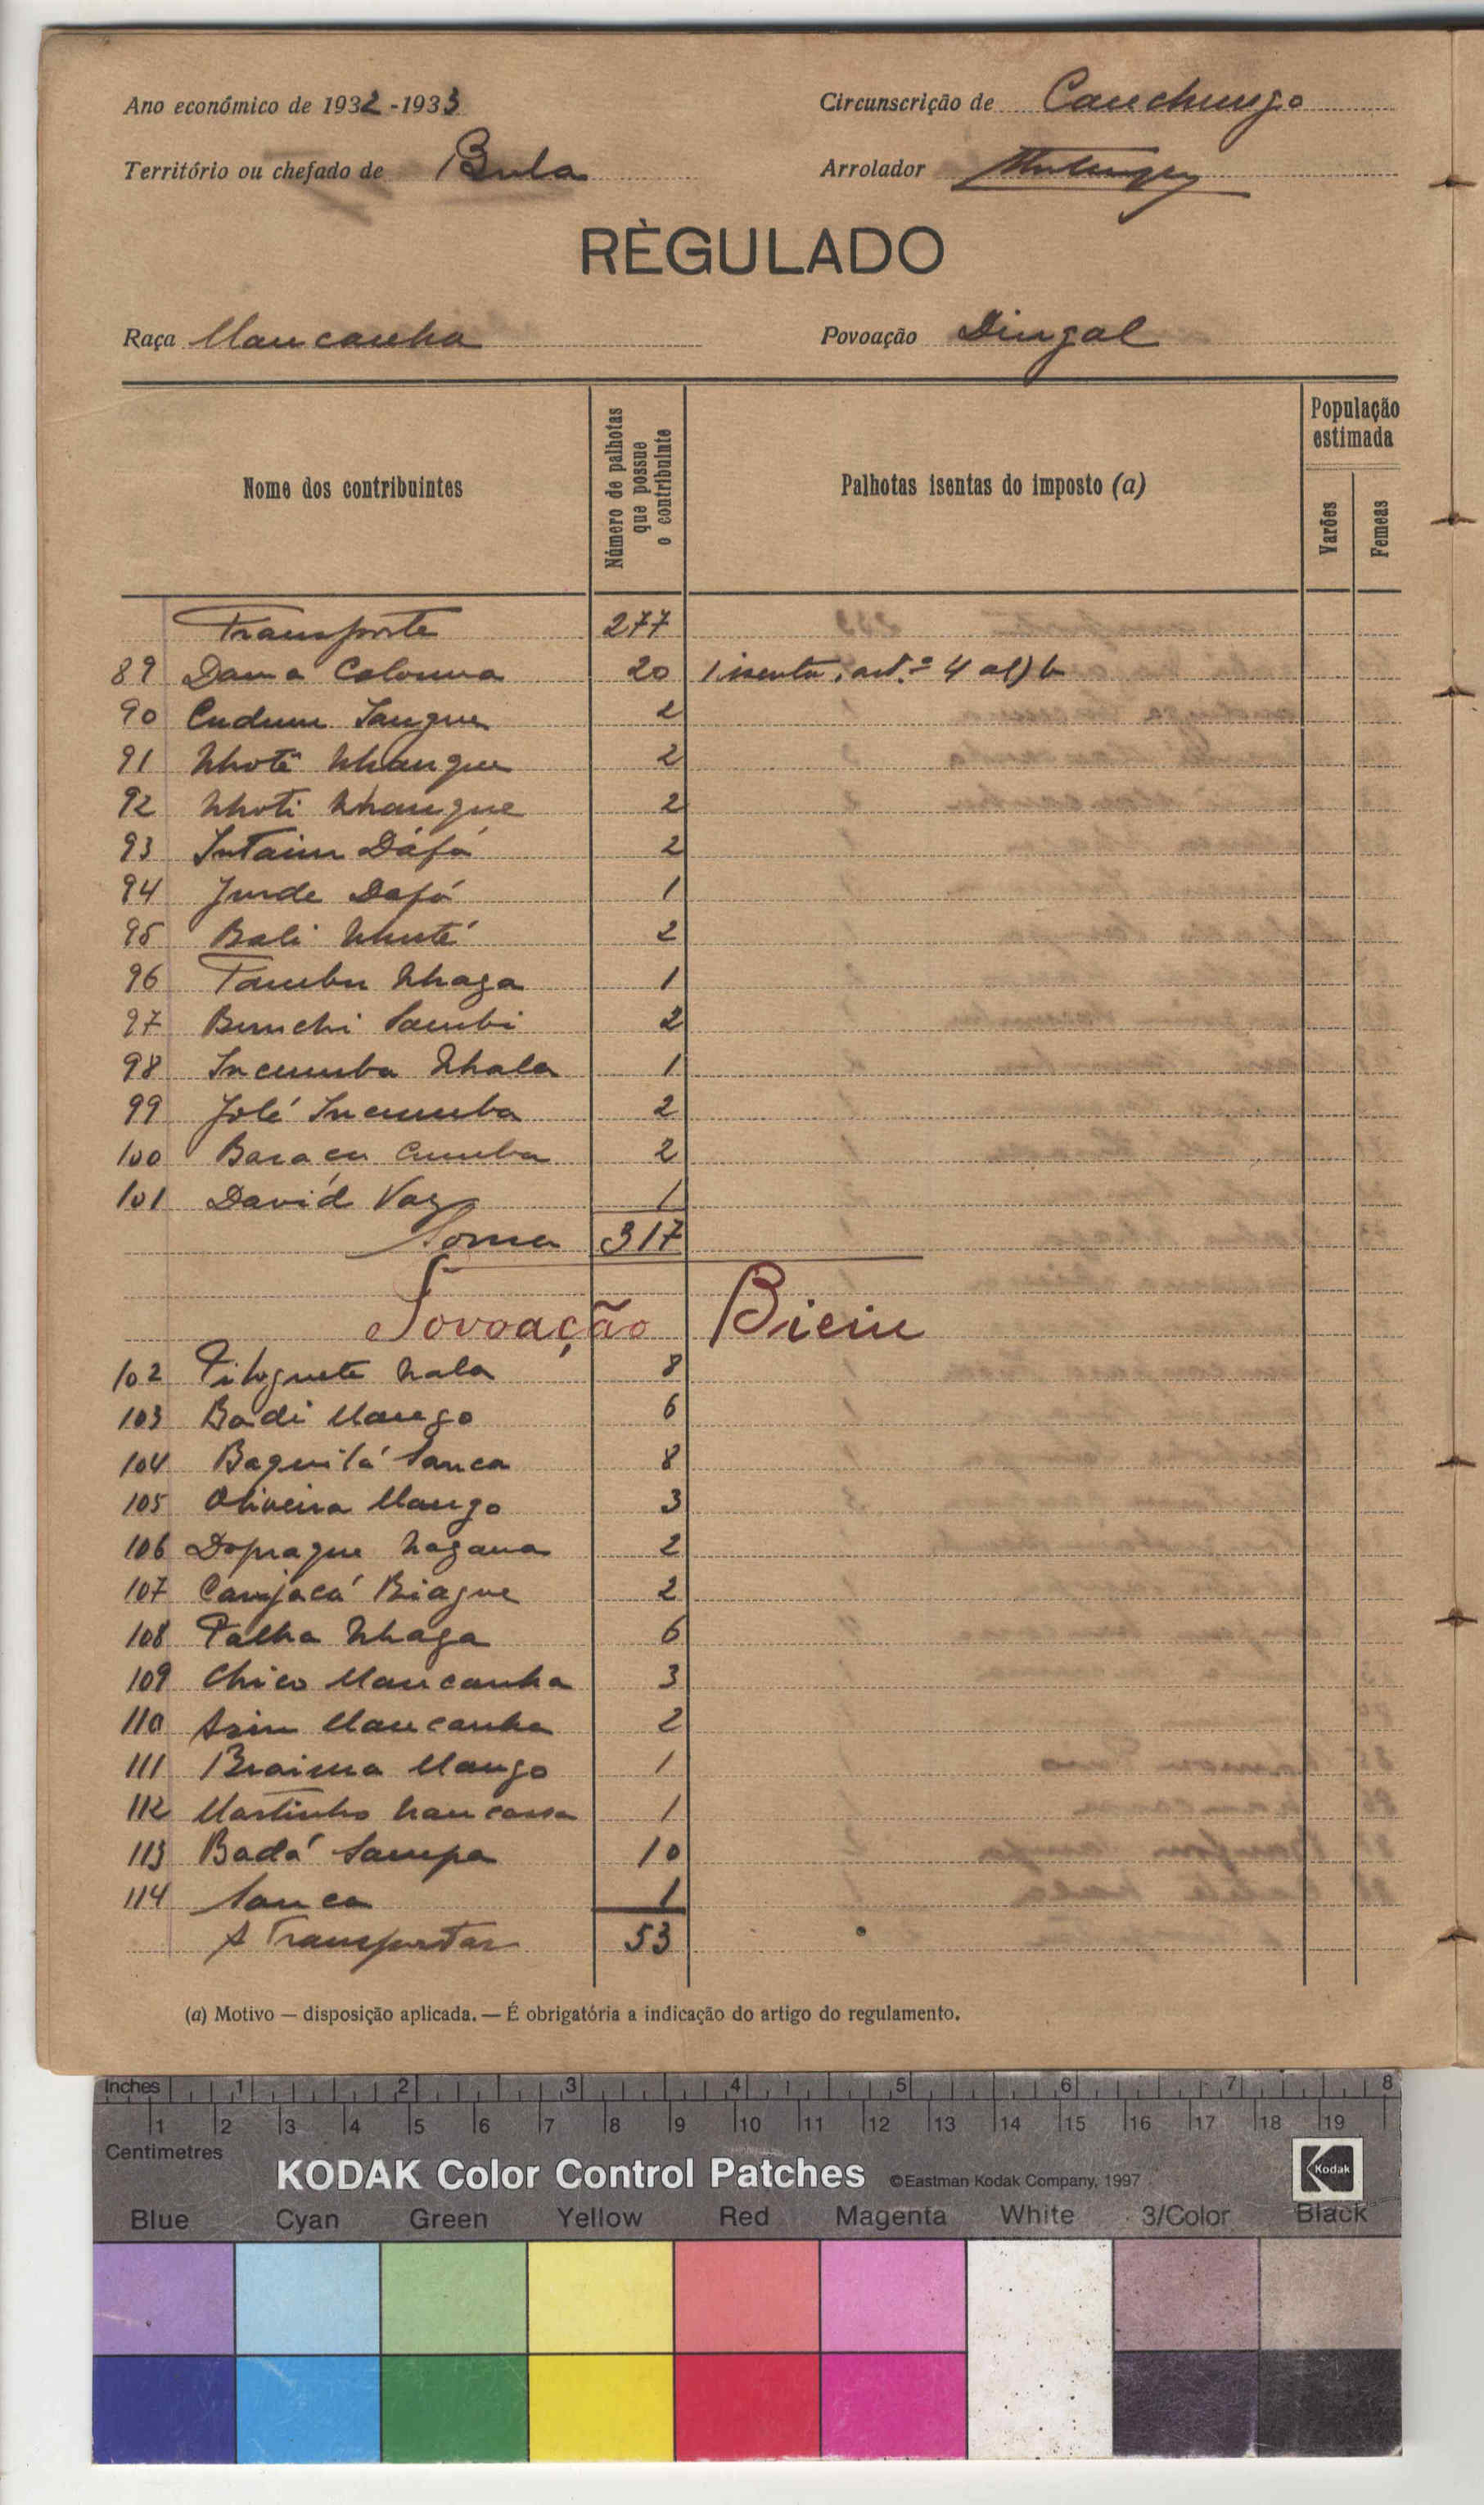 Ano económico de 1932-1933
Circunscrição de Canchungo
Território ou chefado de Bula
Arrolador
RÈGULADO
Raça Mancanha
Povoação Dingal
Nome dos contribuintes
Número de palhotas que possue o contribuinte
Palhotas isentas do imposto (a)
População estimada
Varões
Femeas
Transporte 277
89 Dama Colouna 20 1 isenta, art.º 4 al) b
90 Cudum Sangue 2
91 Nhotê Nhangue 2
92 Nhoti Nhangue 2
93 Intaim Dáfá 2
94 Jurde Dafá 1
95 Bali Nhuté 2
96 Tambu Nhaga 1
97 Bunchi Sambi 2
98 Incumba Nhala 1
99 Jolé Incumba 2
100 Baracu Cumba 2
101 Davíd Vaz 1
Soma 317
Povoação Bieiu
102 Nala 8
103 Badi Mango 6
104 Baquilá Sanca 8
105 Oliveira Mango 3
106 Doprague Nagana 2
107 Canjacá Biague 2
108 Palha Nhaga 6
109 Chico Mancanha 3
110 Asin Mancanha 2
111 Braima Mango 1
112 Martinho Nancassa 1
113 Badá Sampa 10
114 Sanca 1
A Transportar 53
(a) Motivo — disposição aplicada. — É obrigatória a indicação do artigo do regulamento.
Inches 1 2 3 4 5 6 7 8
1 2 3 4 5 6 7 8 9 10 11 12 13 14 15 16 17 18 19
Centimetres
KODAK Color Control Patches ©Eastman Kodak Company, 1997 Kodak
Blue Cyan Green Yellow Red Magenta White 3/Color Black